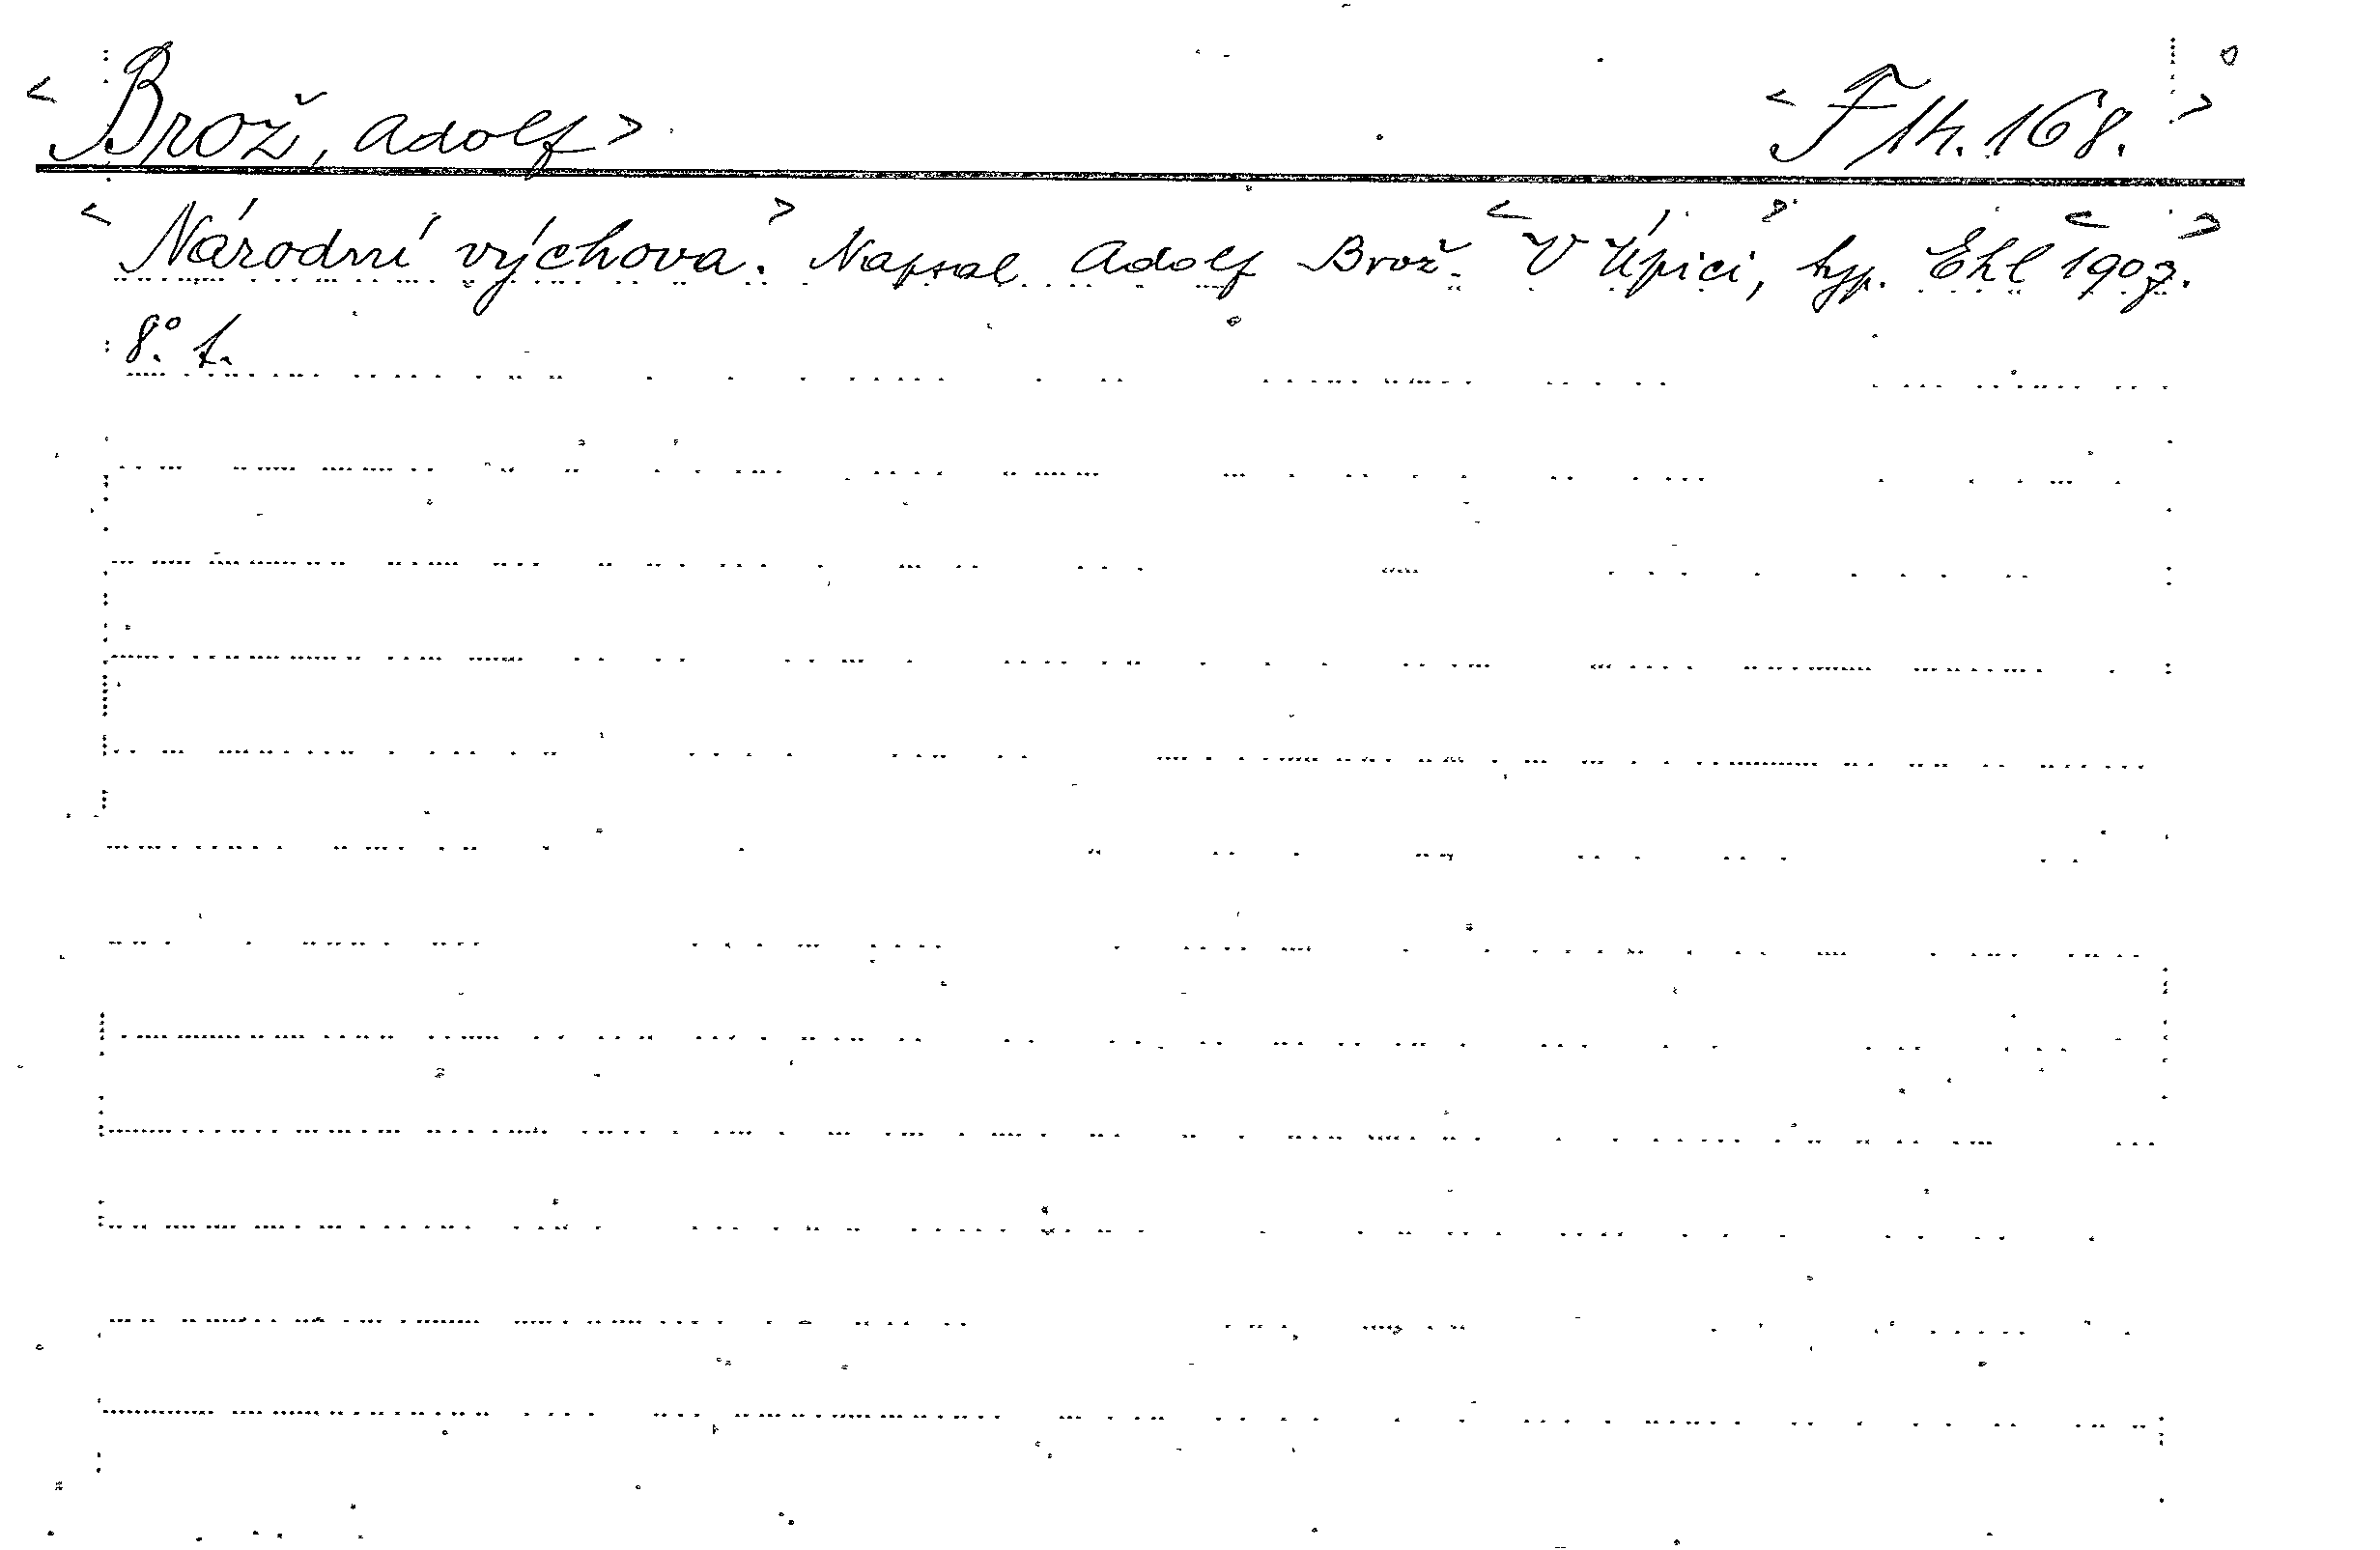 <Brož, Adolf> <F 14.168.>
<Národní výchova.> Napsal Adolf Brož. <V Úpici,> typ. Ehl <1907.>
8° f.